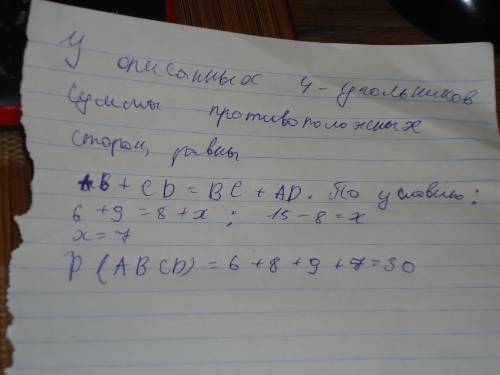 У описанных 4-угольников
суммы противоположных
сторон, равны
AB + CD = BC + AD. По условию:
6 + 9 = 8 + x ; 15 - 8 = x
x = 7
P (ABCD) = 6 + 8 + 9 + 7 = 30